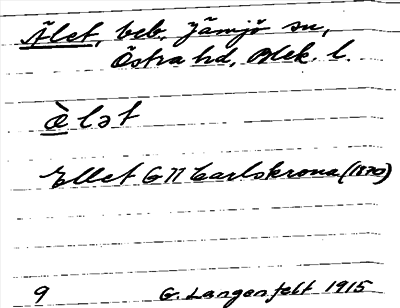 Ålet, beb. Jämjö sn,
Östra hd, Blek. l.
ὲ lət
Ellet G N Carlskrona (1870)
9 G. Langenfelt 1915